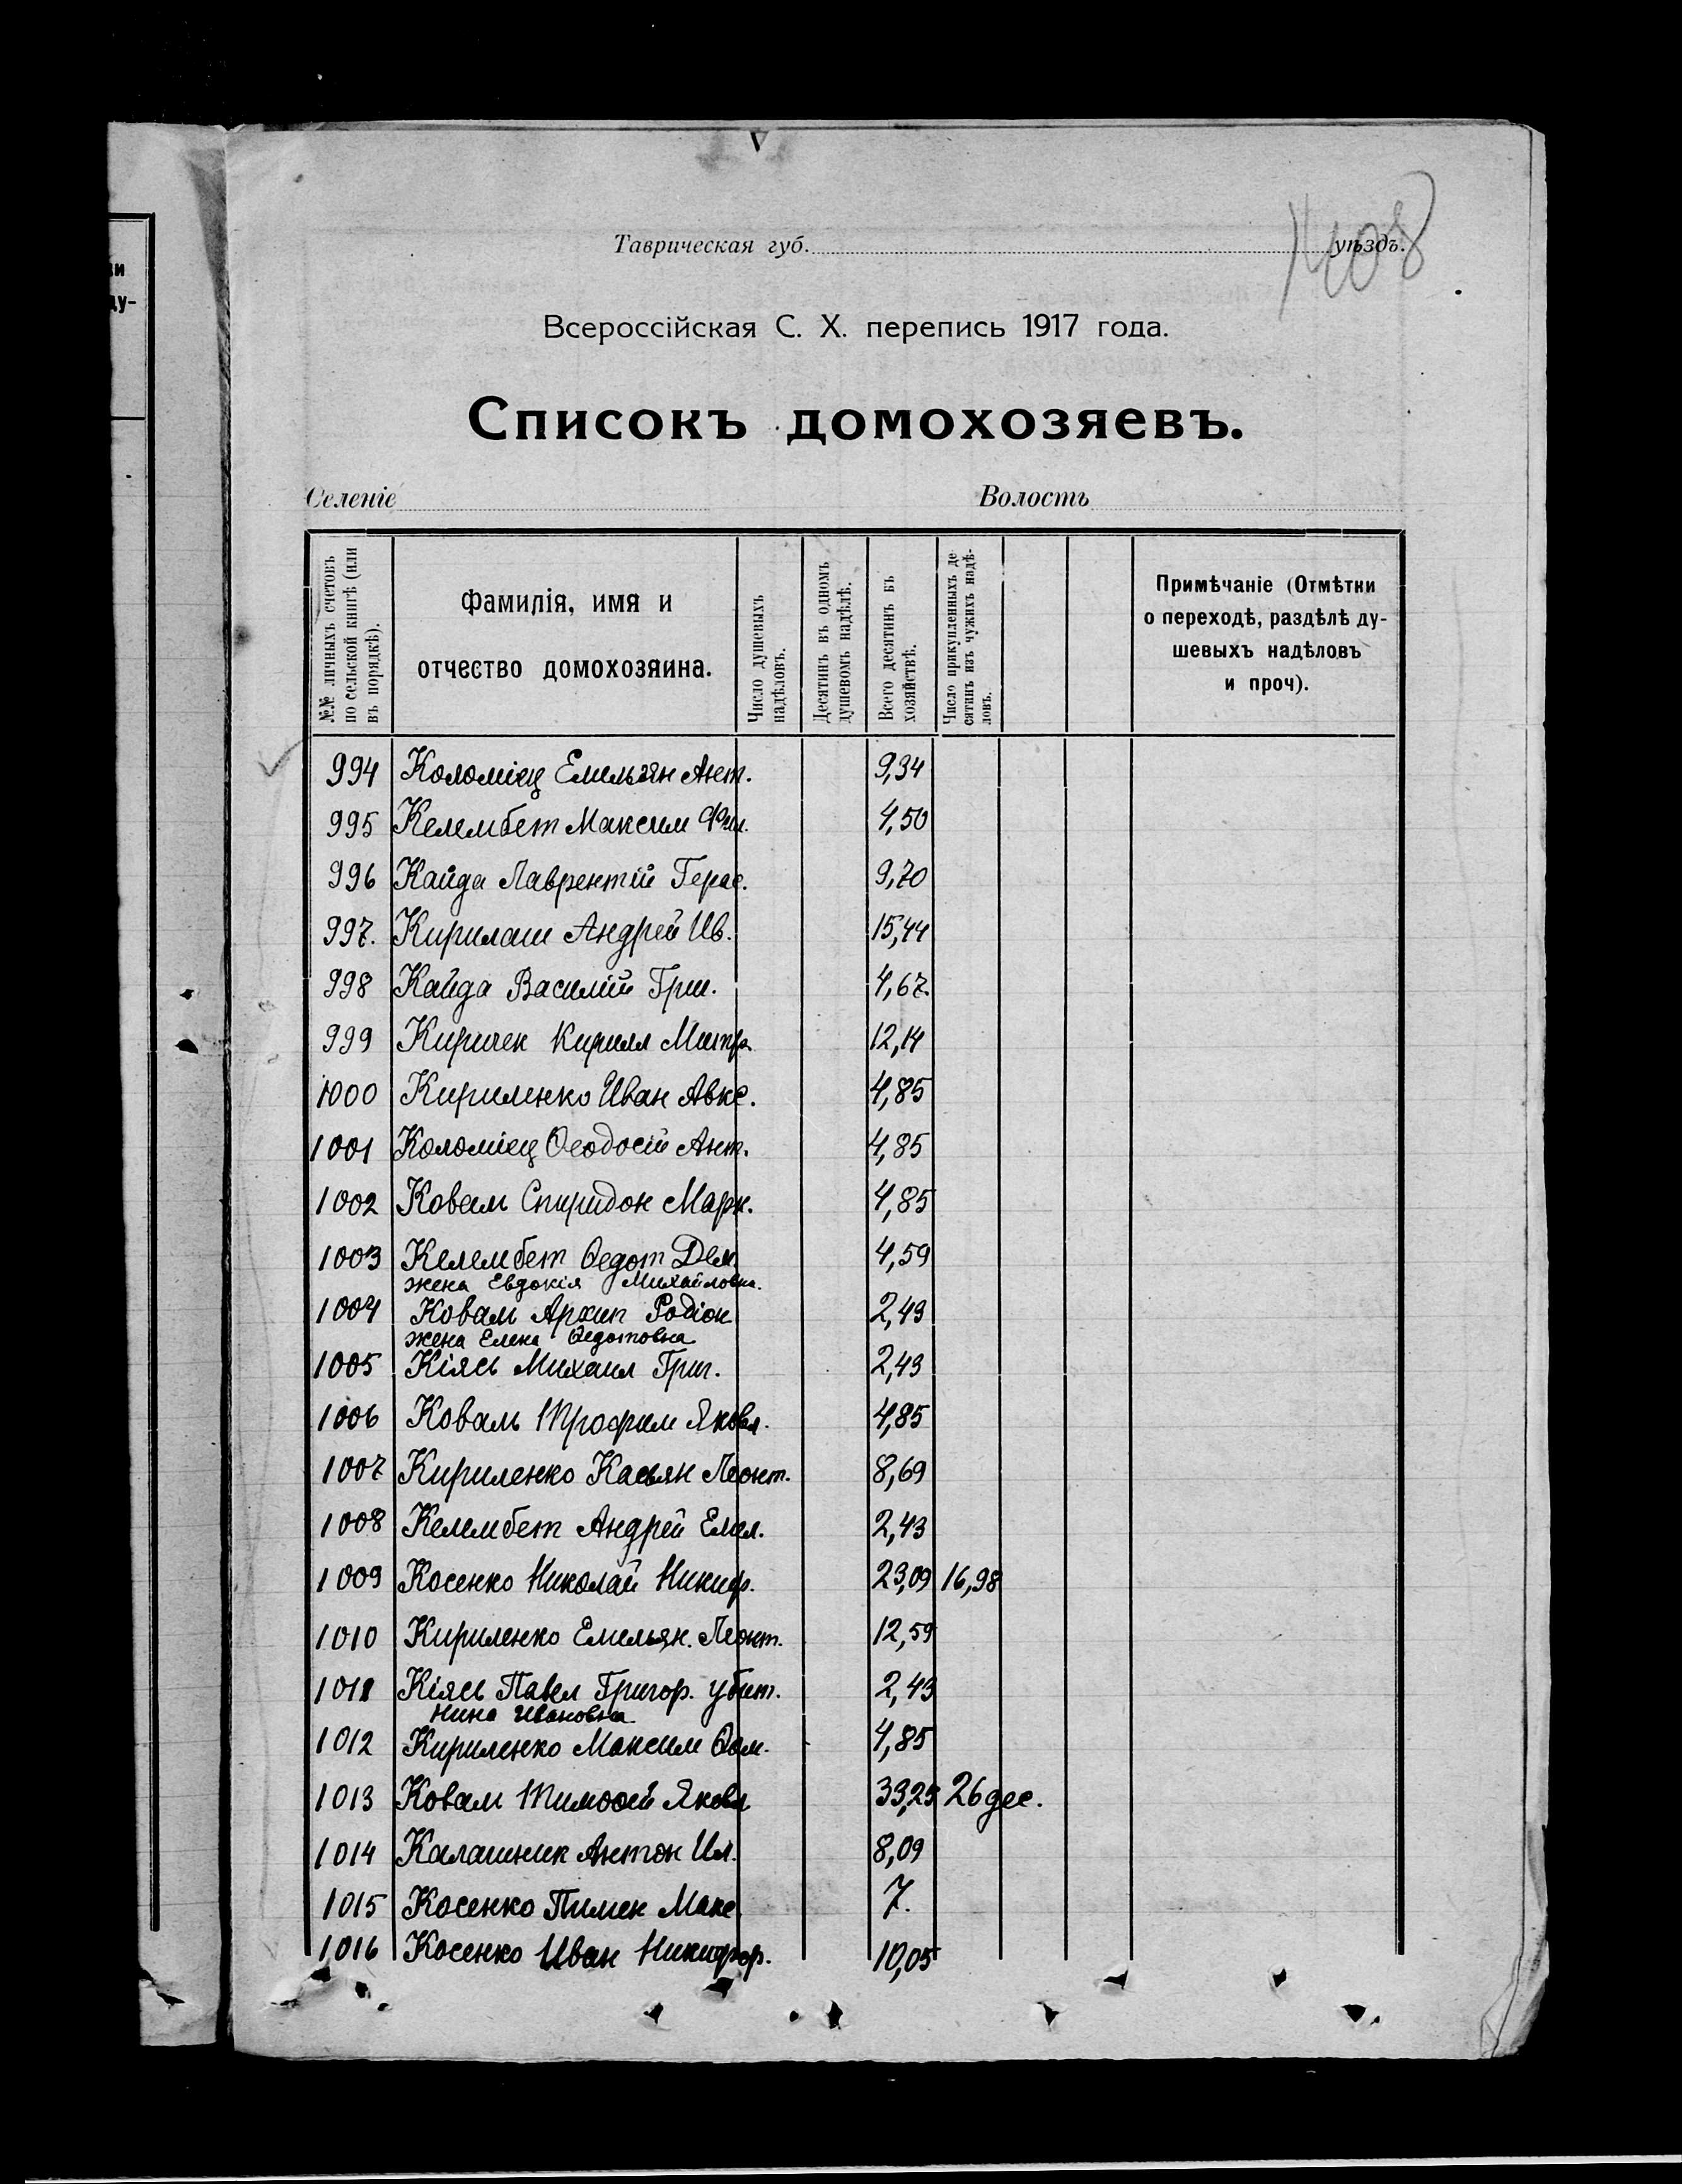 Таврическая губ. уѣздъ.
1408
Всероссійская С. Х. перепись 1917 года.
Списокъ домохозяевъ.
Селеніе Волость
№№ личныхъ счетовъ по сельской книгѣ (или въ порядкѣ).
Фамилія, имя и отчество домохозяина.
Число душевыхъ надѣловъ.
Десятинъ въ одномъ душевомъ надѣлѣ.
Всего десятинъ въ хозяйствѣ.
Число прикупленныхъ десятинъ изъ чужихъ надѣловъ.
Примѣчаніе (Отмѣтки о переходѣ, раздѣлѣ душевыхъ надѣловъ и проч).
994 Коломіец Емельян Ант. 9,34
995 Келембет Максим Фил. 4,50
996 Кайда Лаврентій Герас. 9,70
997. Кирилаш Андрей Ив. 15,44
998 Кайда Василій Гри. 4,67.
999 Киричек Кирилл Митр. 12,14
1000 Кириленко Иван Авкс. 4,85
1001 Коломіец Ѳеодосій Ант. 4,85
1002 Коваль Спиридон Марк. 4,85
1003 Келембет Ѳедот Дем. 4,59
жена Евдокія Михайловна.
1004 Коваль Архип Родіон 2,43
жена Елена Ѳедотовна
1005 Кіясь Михаил Григ. 2,43
1006 Коваль Трофим Яковл. 4,85
1007 Кириленко Касьян Леонт. 8,69
1008 Келембет Андрей Емел. 2,43
1009 Косенко Николай Никиф. 23,09 16,98
1010 Кириленко Емельян. Леонт. 12,59
1011 Кіясь Павел Григор. убит. 2,43
Нина Ивановна
1012 Кириленко Максим Ѳом. 4,85
1013 Коваль Тимоѳей Яковл 33,25 26 дес.
1014 Калашник Антон Ил. 8,09
1015 Косенко Пимен Макс. 7.
1016 Косенко Иван Никифор. 10,05